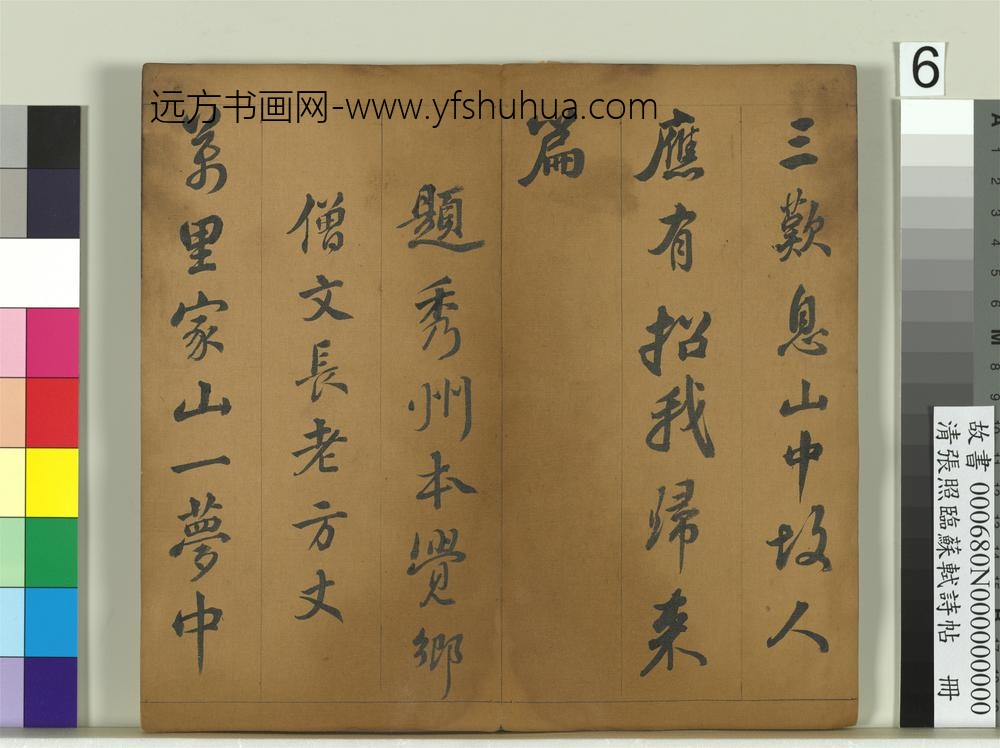 远方书画网-www.yfshuhua.com
三歎息山中故人
應有招我歸来
篇
題秀州本覺鄉
僧文長老方丈
萬里家山一夢中
6
故書 000680N000000000
清張照臨蘇軾詩帖 冊